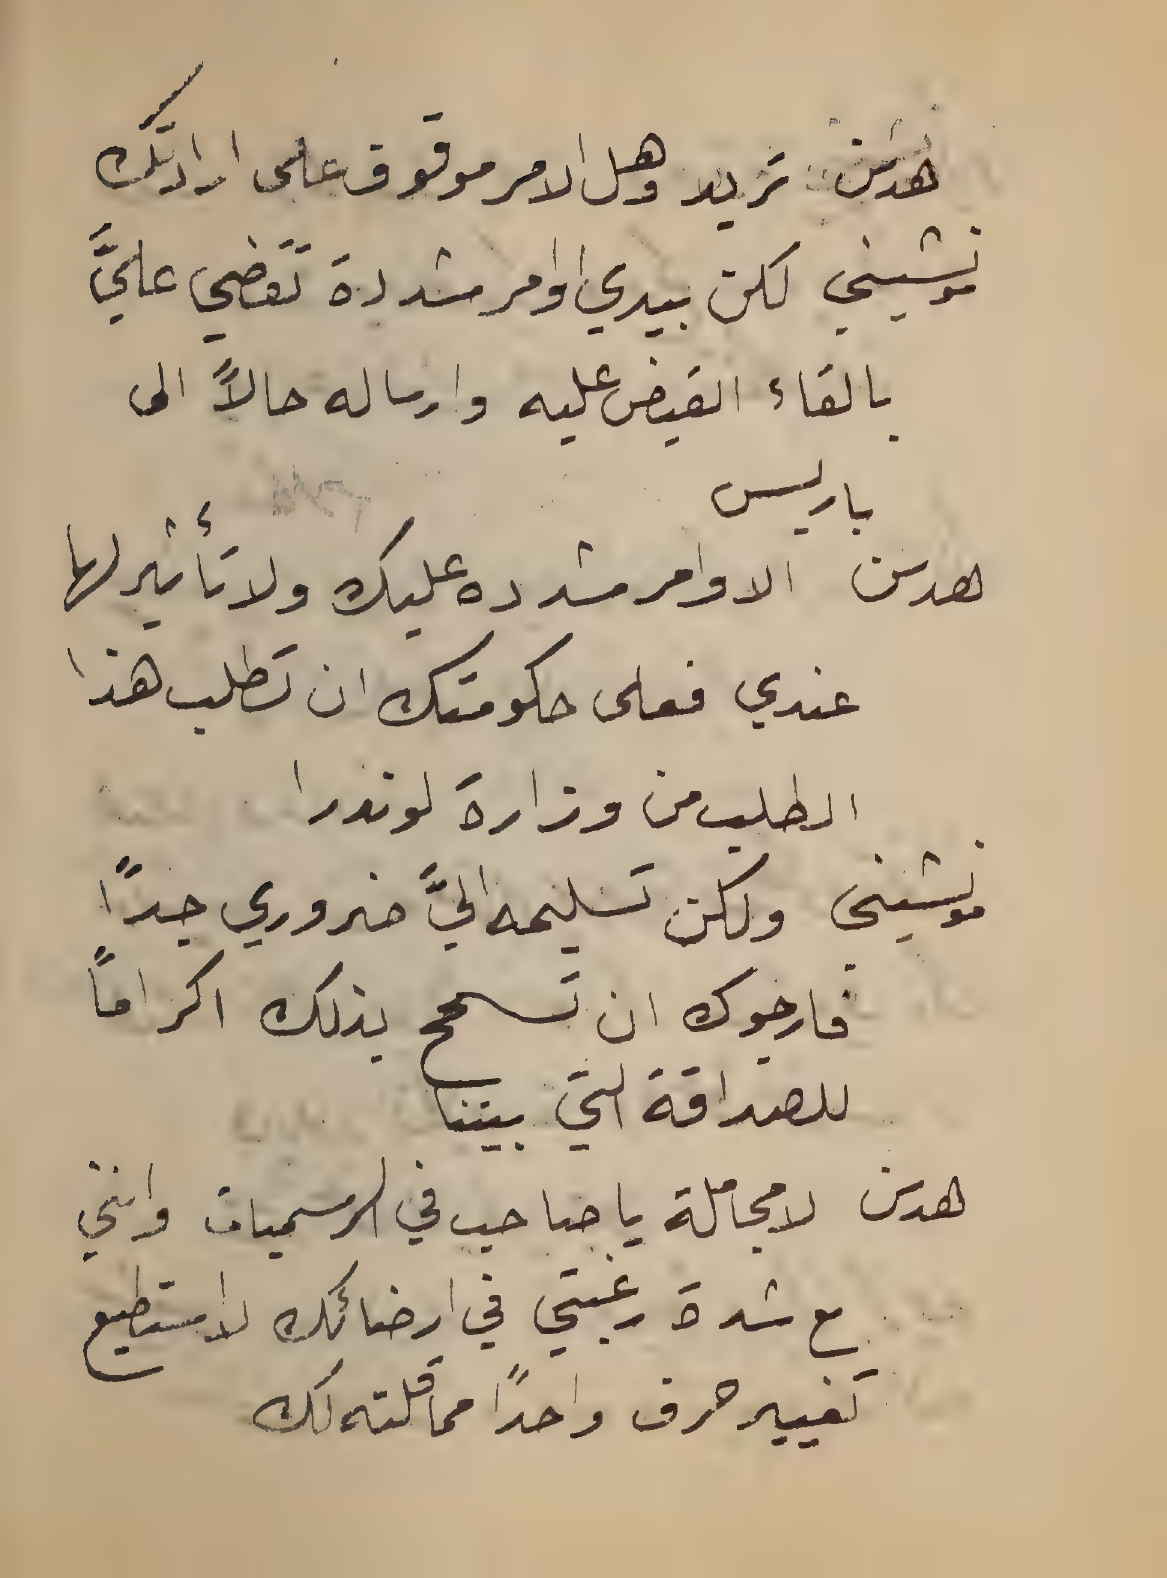 هدسن تريد وهل الامر موقوف على ارادتك
مونشيني لكن بيدي اوامر مشددة تقضي عليَّ
بالقاء القبض عليه وارساله حالاً الى
باريس
هدسن الاوامر مشدده عليك ولا تأثير لها
عندي فعلى حكومتك ان تطلب هذا
الطلب من وزارة لوندرا
مونشيني ولكن تسليمه اليَّ ضروري جداً
فارجوك ان تسمح بذلك اكراماً
للصداقة التي بيننا
هدسن لا مجاملة يا صاحب في الرسميات وانني
مع شدة رغبتي في ارضائك لا استطيع
تغيير حرف واحداً مما قلته لك